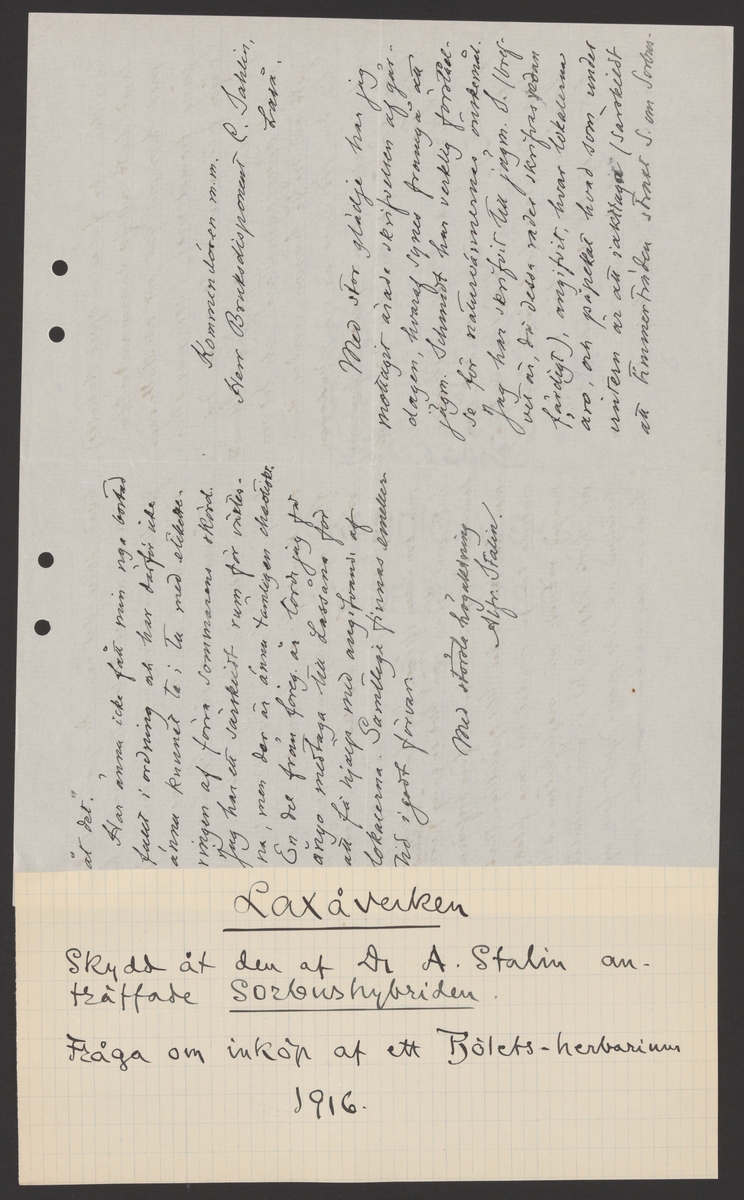 Kommendören m.m.
Herr Bruksdisponent C. Sahlin,
Laxå.
Med stor glädje har jag
mottagit ärade skrifvelsen af går-
dagen, hvaraf synes framgå att
jägm. Schmidt har verklig förståel-
se för naturvännernas önskemål.
Jag har skrifvit till jägm. S. (bref-
vet är, då dessa rader skrifvas, redan
färdigt), angifvit, hvar lokalerna
äro, och påpekat hvad som under
vintern är att iakttaga (särskildt
att timmertråden strax S. om Sorbus-
åt det".
Har ännu icke fått min nya bostad
fullt i ordning och har därför icke
ännu kunnat ta i tu med etikette-
ringen af förra sommarens skörd.
Jag har ett särskildt rum för växter-
na, men där är ännu tämligen chaotiskt.
En del från föreg. år torde jag få
ånyo medtaga till Laxåana för
att få hjälp med angifvande af
lokalerna. Samtliga finnas emeller-
tid i godt förvar.
Med största högaktning
Alfr. Stalin.
Laxåverken
Skydd åt den af Dr A. Stalin an-
träffade Sorbushybriden.
Fråga om inköp af ett Tjölets-herbarium
1916.